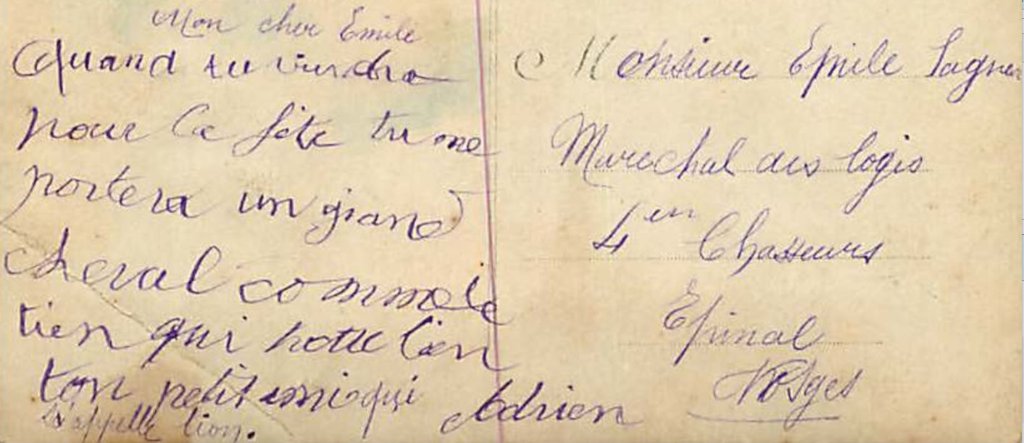 Mon cher Emile
Quand tu viendra
pour la fête tu me
portera un grand
cheval comme le
tien qui
ton petit ami qui Adrien
s'appelle lion.
Monsieur Emile
Marechal des logis
4en Chasseurs
Epinal
Vosges